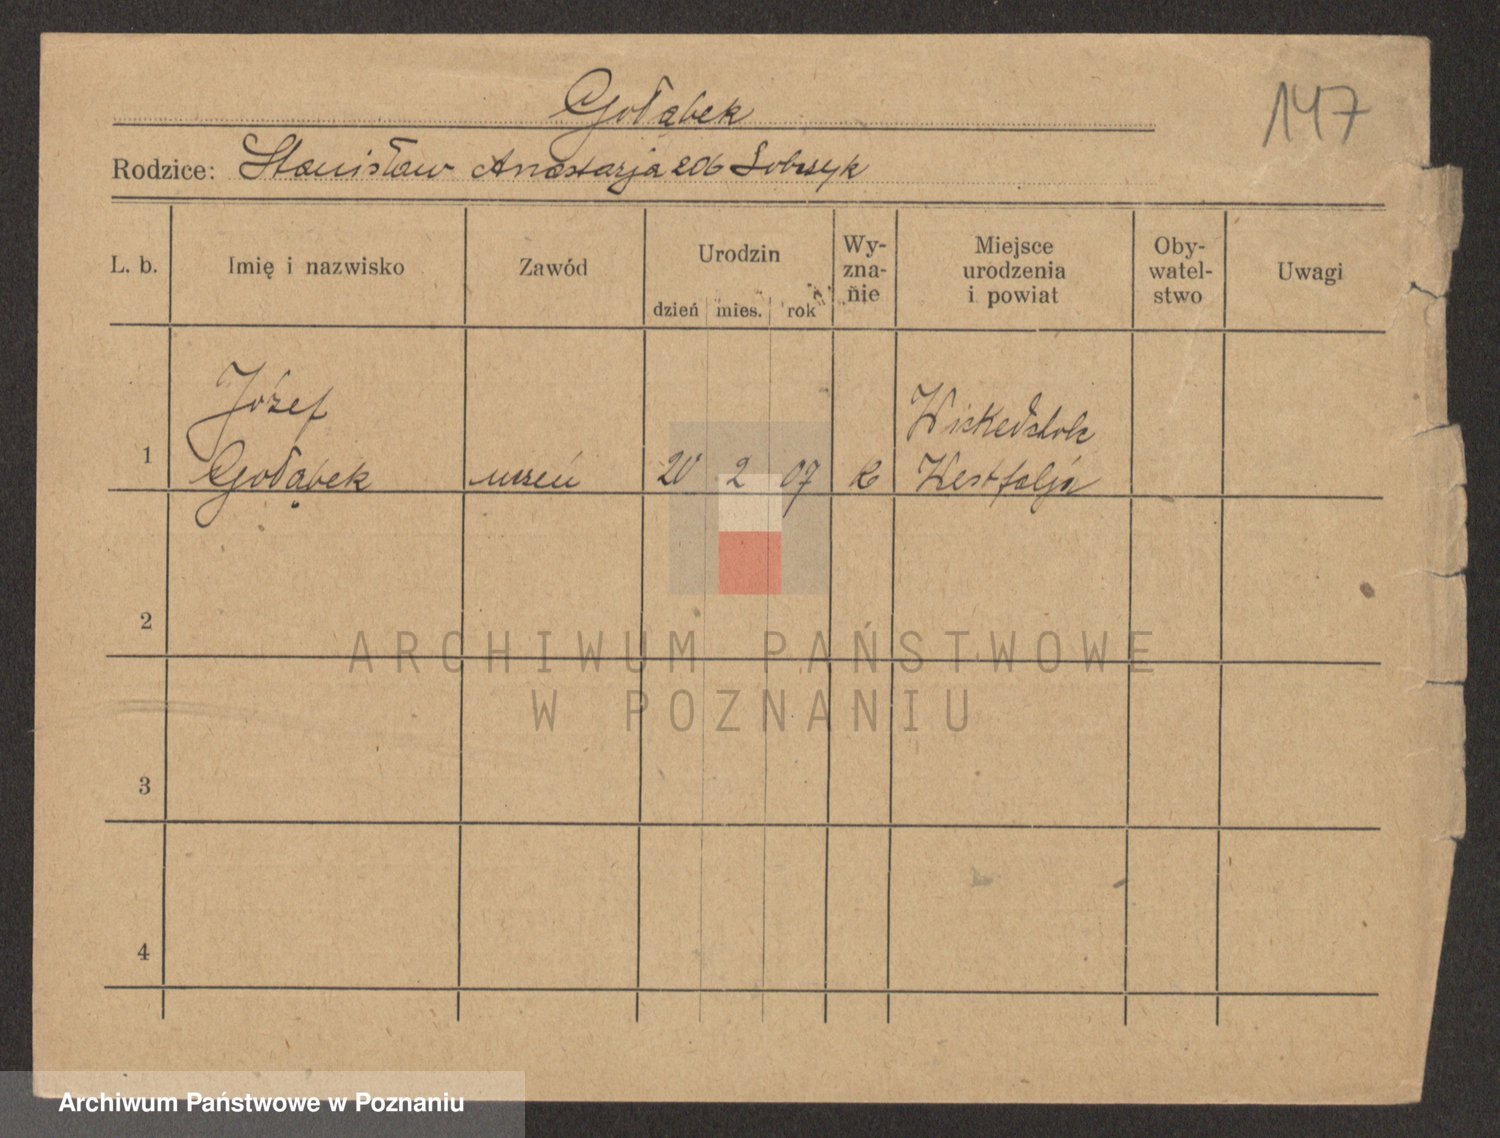 Gołąbek
147
Rodzice: Stanisław Anastazja
L. b. Imię i nazwisko Zawód Urodzin Wy-zna-nie Miejsce urodzenia i powiat Oby-watel-stwo Uwagi
dzień mies. rok
Józef
1 Gołąbek uczeń 20 2 07 k Westfalja
2
ARCHIWUM PAŃSTWOWE
W POZNANIU
3
4
Archiwum Państwowe w Poznaniu